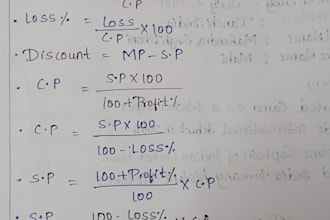 C.P
• Loss% = Loss/C.P × 100
• Discount = MP - S.P
• C.P = S.P × 100 / 100 + Profit%
• C.P = S.P × 100 / 100 - Loss%
• S.P = 100 + Profit% / 100 × C.P
• S.P 100 - Loss%